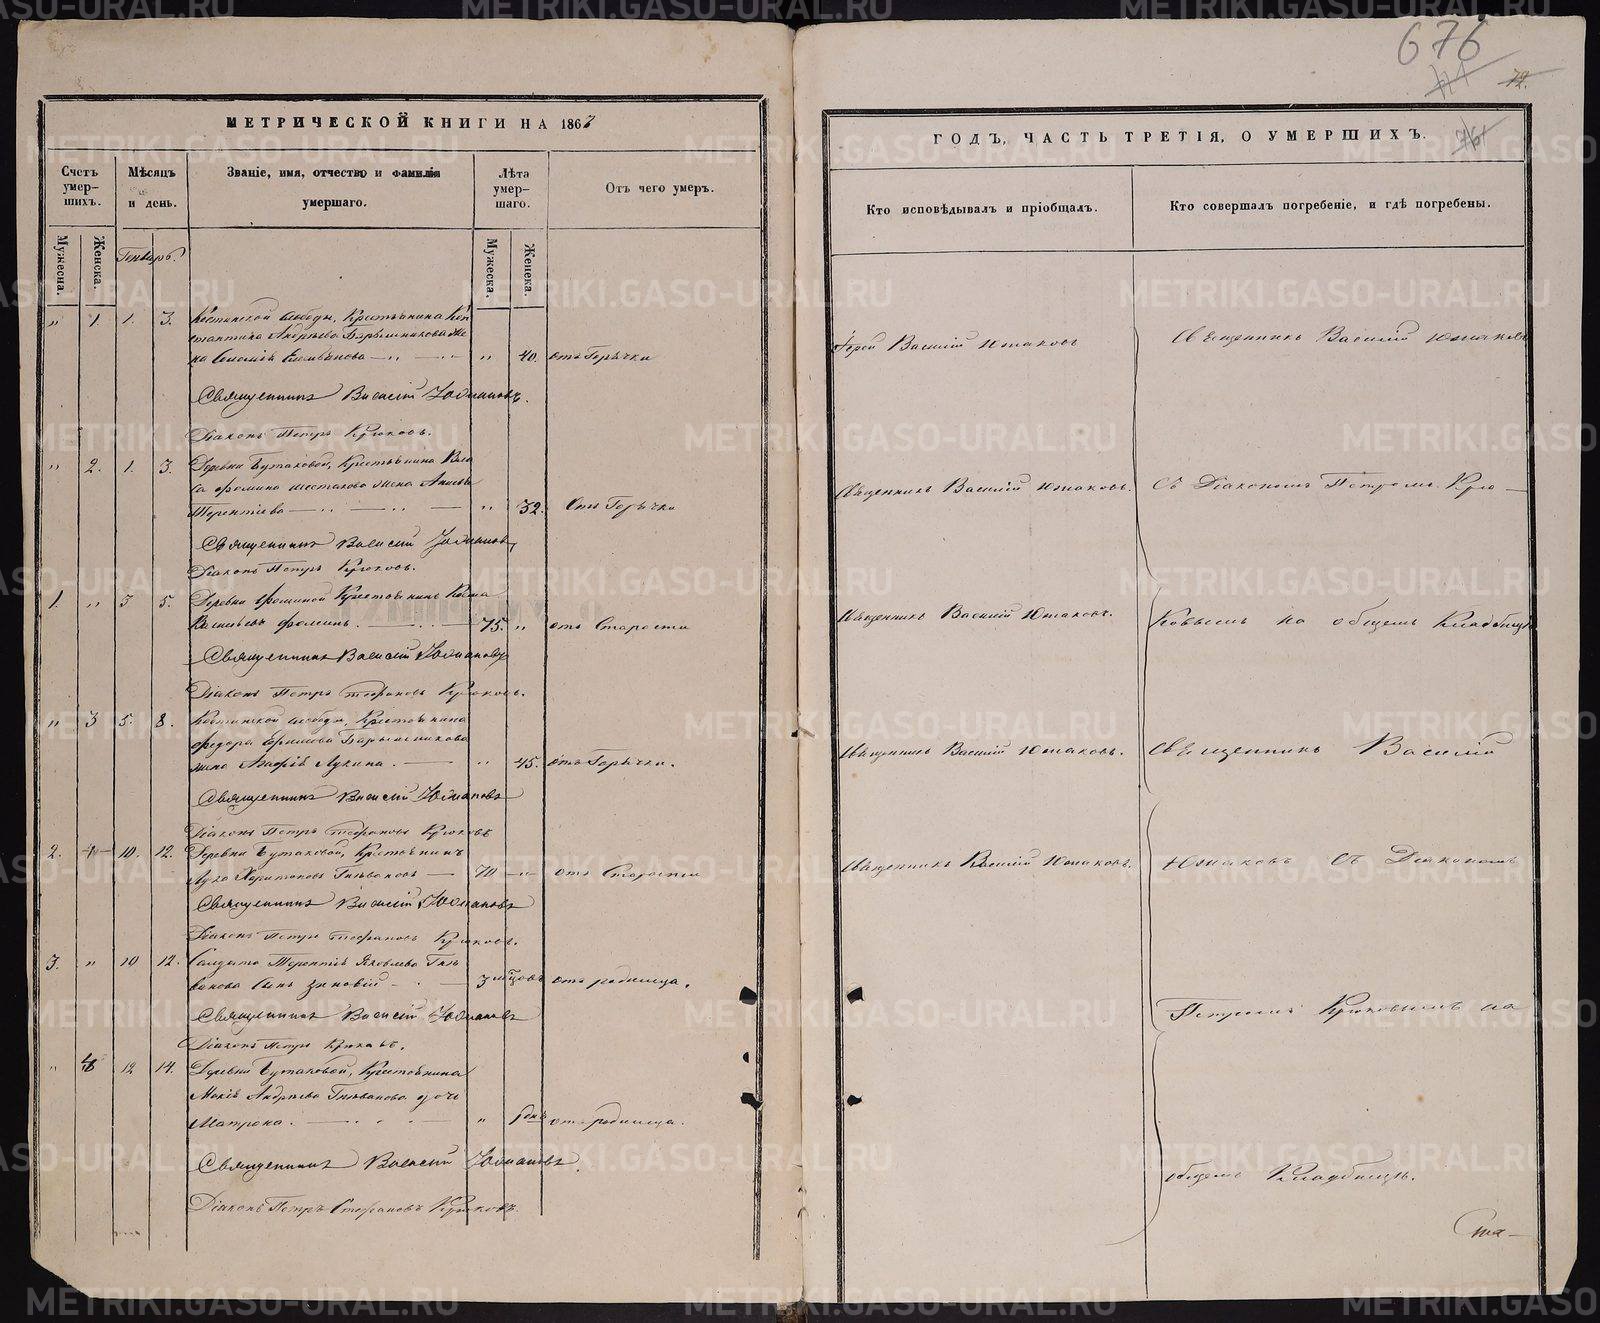 676
72.
МЕТРИЧЕСКОЙ КНИГИ НА 1867
Счетъ умер-шихъ.
Мѣсяцъ и день.
Званіе, имя, отчество и фамилія умершаго.
Лѣта умер-шаго.
Отъ чего умеръ.
Мужеска.
Женска.
Мужеска.
Женска.
Генварь.
" 1. 1. 3. слободы, Крестьянина Кон
стантина Андреева Барышникова же
на " 40. отъ Горячки
Священникъ Василій Юшаковъ.
Діаконъ Петръ Крюковъ.
" 2. 1. 3. Деревни Бутаковой, Крестьянина Вла
са Фомина Шестакова жена
Терентіева " 32. Отъ Горячки
Священникъ Василій Юшаковъ
Діаконъ Петръ Крюковъ.
1. " 3 5. Деревни Фоминой Крестьянинъ
Васильевъ Фоминъ. 75. " отъ Старости
Священникъ Василій Юшаковъ
Діаконъ Петръ Стефановъ Крюковъ.
" 3 5. 8. слободы, Крестьянина
Федора Барышникова
жена Лукина. " 45. отъ Горячки.
Священникъ Василій Юшаковъ
Діаконъ Петръ Стефановъ Крюковъ
2. 10. 12. Деревни Бутаковой, Крестьянинъ
Лука Харитоновъ 70 " отъ Старости
Священникъ Василій Юшаковъ
Діаконъ Петръ Стефановъ Крюковъ.
3. " 10 12. Солдата Терентія Яковлева
Сынъ Зиновій 3 мѣсяцовъ отъ родимца.
Священникъ Василій Юшаковъ
Діаконъ Петръ Крюковъ.
" 4 12 14. Деревни Бутаковой, Крестьянина
Андреева дочь
Матрона. " отъ родимца.
Священникъ Василій Юшаковъ.
Діаконъ Петръ Стефановъ Крюковъ.
ГОДЪ, ЧАСТЬ ТРЕТІЯ, О УМЕРШИХЪ.
Кто исповѣдывалъ и пріобщалъ.
Кто совершалъ погребеніе, и гдѣ погребены.
Іерей Василій Юшаковъ
Священникъ Василій Юшаковъ
Священникъ Василій Юшаковъ.
Съ Діакономъ Петромъ Крю—
Священникъ Василій Юшаковъ.
ковымъ на общемъ Кладбищѣ
Священникъ Василій Юшаковъ.
Священникъ Василій
Священникъ Василій Юшаковъ.
Юшаковъ Съ Діакономъ
Петромъ Крюковымъ на
общемъ Кладбищѣ.
METRIKI.GASO-URAL.RU